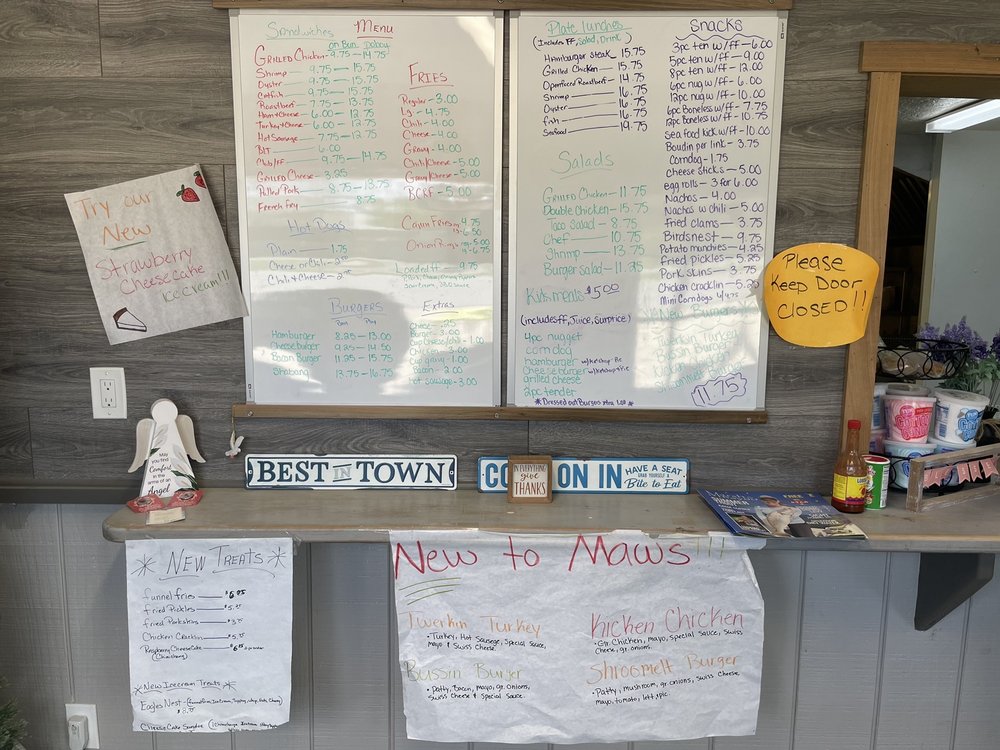 Sandwiches Menu
on Bun
Grilled Chicken - 9.75 - 14.75
Shrimp - 9.75 - 15.75
Oyster - 9.75 - 15.75
Catfish - 9.75 - 15.75
Roastbeef - 7.75 - 13.75
Ham & Cheese - 6.00 - 12.75
Turkey & Cheese - 6.00 - 12.75
Hot Sausage - 7.75 - 12.75
BLT - 6.00
Club/FF - 9.75 - 14.75
Grilled Cheese - 3.25
Pulled Pork - 8.75 - 13.75
French Fry - 8.75
Hot Dogs
Plain - 1.75
Cheese or Chili - 2
Chili & Cheese - 2
Burgers
Hamburger 8.25 - 13.00
Cheeseburger 9.25 - 14.50
Bacon Burger 11.25 - 15.75
Shabang 13.75 - 16.75
Fries
Regular - 3.00
LG - 4.75
Chili - 4.00
Cheese - 4.00
Gravy - 4.00
Chili/Cheese - 5.00
Gravy/Cheese - 5.00
BCRF - 5.00
Cajun Fries 4.75
6.50
Onion Rings 5.00
6.75
Loaded FF - 9.75
Extras
Cheese - .25
Burger - 3.00
Cup Cheese/Chili - 1.00
Chicken - 3.00
Cup gravy - 1.00
Bacon - 2.00
Hot sausage - 3.00
Plate Lunches
(Includes FF, Salad, Drink)
Hamburger steak 15.75
Grilled Chicken - 15.75
Openfaced Roastbeef - 14.75
Shrimp - 16.75
Oyster - 16.75
fish - 16.75
Seafood - 19.75
Salads
Grilled Chicken - 11.75
Double Chicken - 15.75
Taco Salad - 8.75
Chef - 10.75
Shrimp - 13.75
Burger Salad - 11.25
Kids meals $5.00
(includes FF, Juice, Surprice)
4pc nugget
corndog
hamburger
Cheeseburger
grilled cheese
2pc tender
*Dressed out Burger xtra 1.00*
Snacks
3pc ten w/ff - 6.00
5pc ten w/ff - 9.00
8pc ten w/ff - 12.00
6pc nug w/ff - 6.00
12pc nug w/ff - 10.00
6pc Boneless w/ff - 7.75
12pc Boneless w/ff - 10.75
Sea food kick w/ff - 10.00
Boudin per link - 3.75
Corndog - 1.75
cheese sticks - 5.00
egg rolls - 3 for 6.00
Nachos - 4.00
Nachos w chili - 5.00
Fried clams - 3.75
Birdsnest - 9.75
Potato munchies - 4.25
Fried pickles - 5.25
Pork skins - 3.75
Chicken cracklin - 5.25
Mini Corndogs 4/4.75
New Burgers
Twerkin Turkey
Bussin Burger
Kicken Chicken
Shroomelt Burger
11.75
Try our
New
Strawberry
Cheesecake
ice cream!!!
Please
Keep Door
Closed!!
May you
find
Comfort
in the
arms of an
Angel
BEST IN TOWN
CO ON IN
HAVE A SEAT
GRAB YOURSELF A
Bite to Eat
IN EVERYTHING
give
THANKS
New Treats
funnel fries - $6
fried Pickles - $5
fried Porkskins - $3
Chicken Cracklin - $5
Raspberry CheeseCake - $6
(Chimichang)
New Icecream Treats
Eagles Nest -
$8
Cheese Cake Sundae
New to Maws !!!
Twerkin Turkey
• Turkey, Hot Sausage, Special Sauce,
mayo & Swiss Cheese.
Bussin Burger
• Patty, Bacon, mayo, gr. onions,
Swiss Cheese & Special Sauce.
Kicken Chicken
• Gr. Chicken, mayo, Special Sauce, Swiss
Cheese, gr. onions.
Shroomelt Burger
• Patty, mushroom, gr. onions, Swiss Cheese,
mayo, tomato, lett, pic.